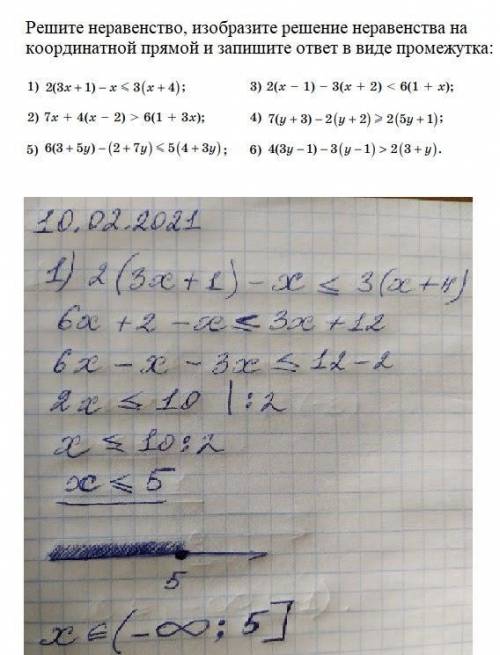 Решите неравенство, изобразите решение неравенства на
координатной прямой и запишите ответ в виде промежутка:
1) 2(3x + 1) – x ⩽ 3(x + 4); 3) 2(x – 1) – 3(x + 2) < 6(1 + x);
2) 7x + 4(x – 2) > 6(1 + 3x); 4) 7(y + 3) – 2(y + 2) ⩾ 2(5y + 1);
5) 6(3 + 5y) – (2 + 7y) ⩽ 5(4 + 3y); 6) 4(3y – 1) – 3(y – 1) > 2(3 + y).
10.02.2021
1) 2(3x+1) – x ≤ 3(x+4)
6x + 2 – x ≤ 3x + 12
6x – x – 3x ≤ 12 – 2
2x ≤ 10 | : 2
x ≤ 10 : 2
x ≤ 5
5
x ∈ (–∞; 5]